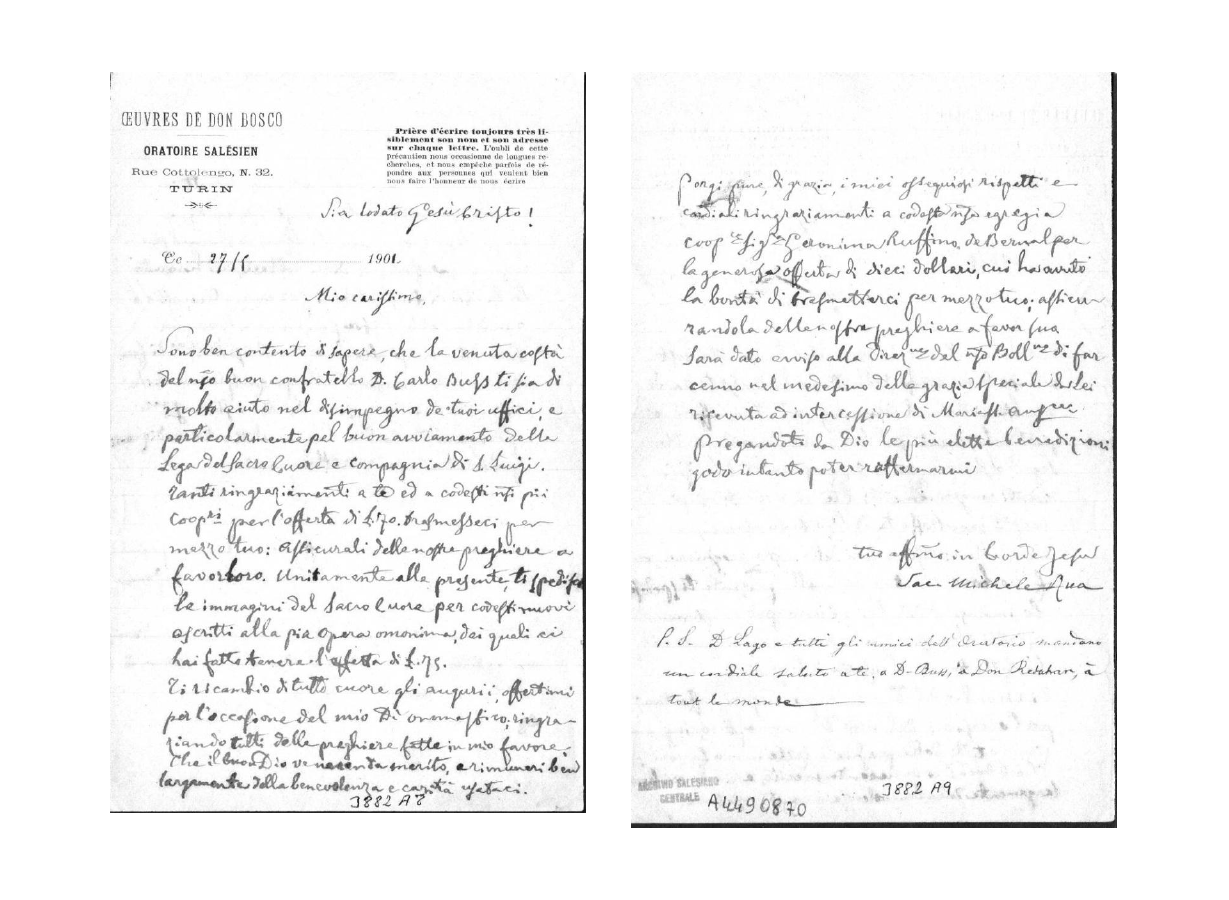 ŒUVRES DE DON BOSCO
ORATOIRE SALÉSIEN
Rue Cottolengo, N. 32.
TURIN
Prière d'écrire toujours très li-
siblement son nom et son adresse
sur chaque lettre. L'oubli de cette
précaution nous occasionne de longues re-
cherches, et nous empêche parfois de ré-
pondre aux personnes qui veulent bien
nous faire l'honneur de nous écrire
Sia lodato Gesù Cristo!
Ce 27/5 1901
Mio carissimo,
Sono ben contento di sapere, che la venuta costà
del nso buon confratello D. Carlo Buss ti sia di
molto aiuto nel disimpegno de' tuoi uffici, e
particolarmente pel buon avviamento della
Lega del Sacro Cuore e compagnia di S. Luigi.
Tanti ringraziamenti a te ed a codesti nsi pii
Coopri per l'offerta di £.70. trasmesseci per
mezzo tuo: assicurali delle nostre preghiere a
favor loro. Unitamente alla presente, ti spedisco
le immagini del Sacro Cuore per codesti nuovi
ascritti alla pia Opera omonima, dei quali ci
hai fatto tenere l'offerta di £.75.
Ti ricambio di tutto cuore gli augurii, offertimi
per l'occasione del mio Dì onomastico, ringra-
ziando tutti delle preghiere fatte in mio favore.
Che il buon Dio ve ne renda merito, e rimuneri ben
largamente della benevolenza e carità usataci.
3882 A8
Porgi pure, di grazia, i miei ossequiosi rispetti e
cordiali ringraziamenti a codesta nsa egregia
coop Sig Geronima Ruffino de Bernal per
la generosa offerta di dieci dollari, cui ha avuto
la bontà di trasmetterci per mezzo tuo; assicu-
randola delle nostre preghiere a favor sua
Sarà dato avviso alla Direzne del nso Bollno di far
cenno nel medesimo della grazia speciale da lei
ricevuta ad intercessione di Maria SS.
Pregandoti da Dio le più elette benedizioni
godo intanto poter raffermarmi
tuo affmo in Corde Jesu
Sac. Michele Rua
P.S. D. Lago e tutti gli amici dell'Oratorio mandano
un cordiale saluto a te, a D. Buss, à Don Redahan, à
tout le monde
ARCHIVIO SALESIANO
CENTRALE
A4490870
3882 A9